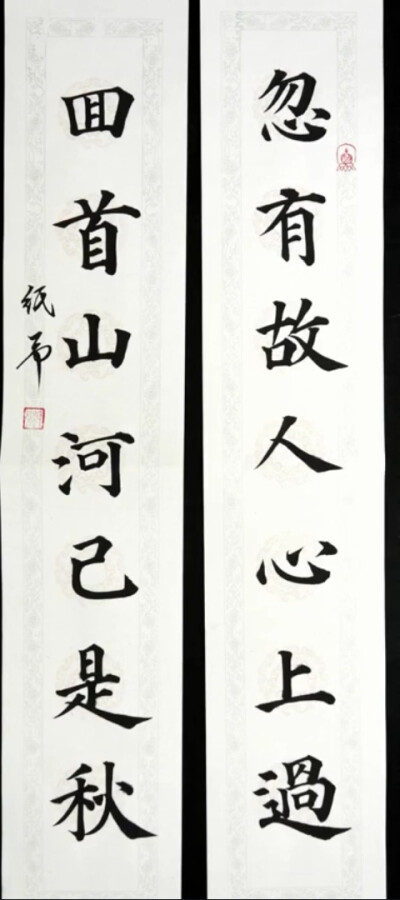 忽有故人心上過
囬首山河已是秋
纸